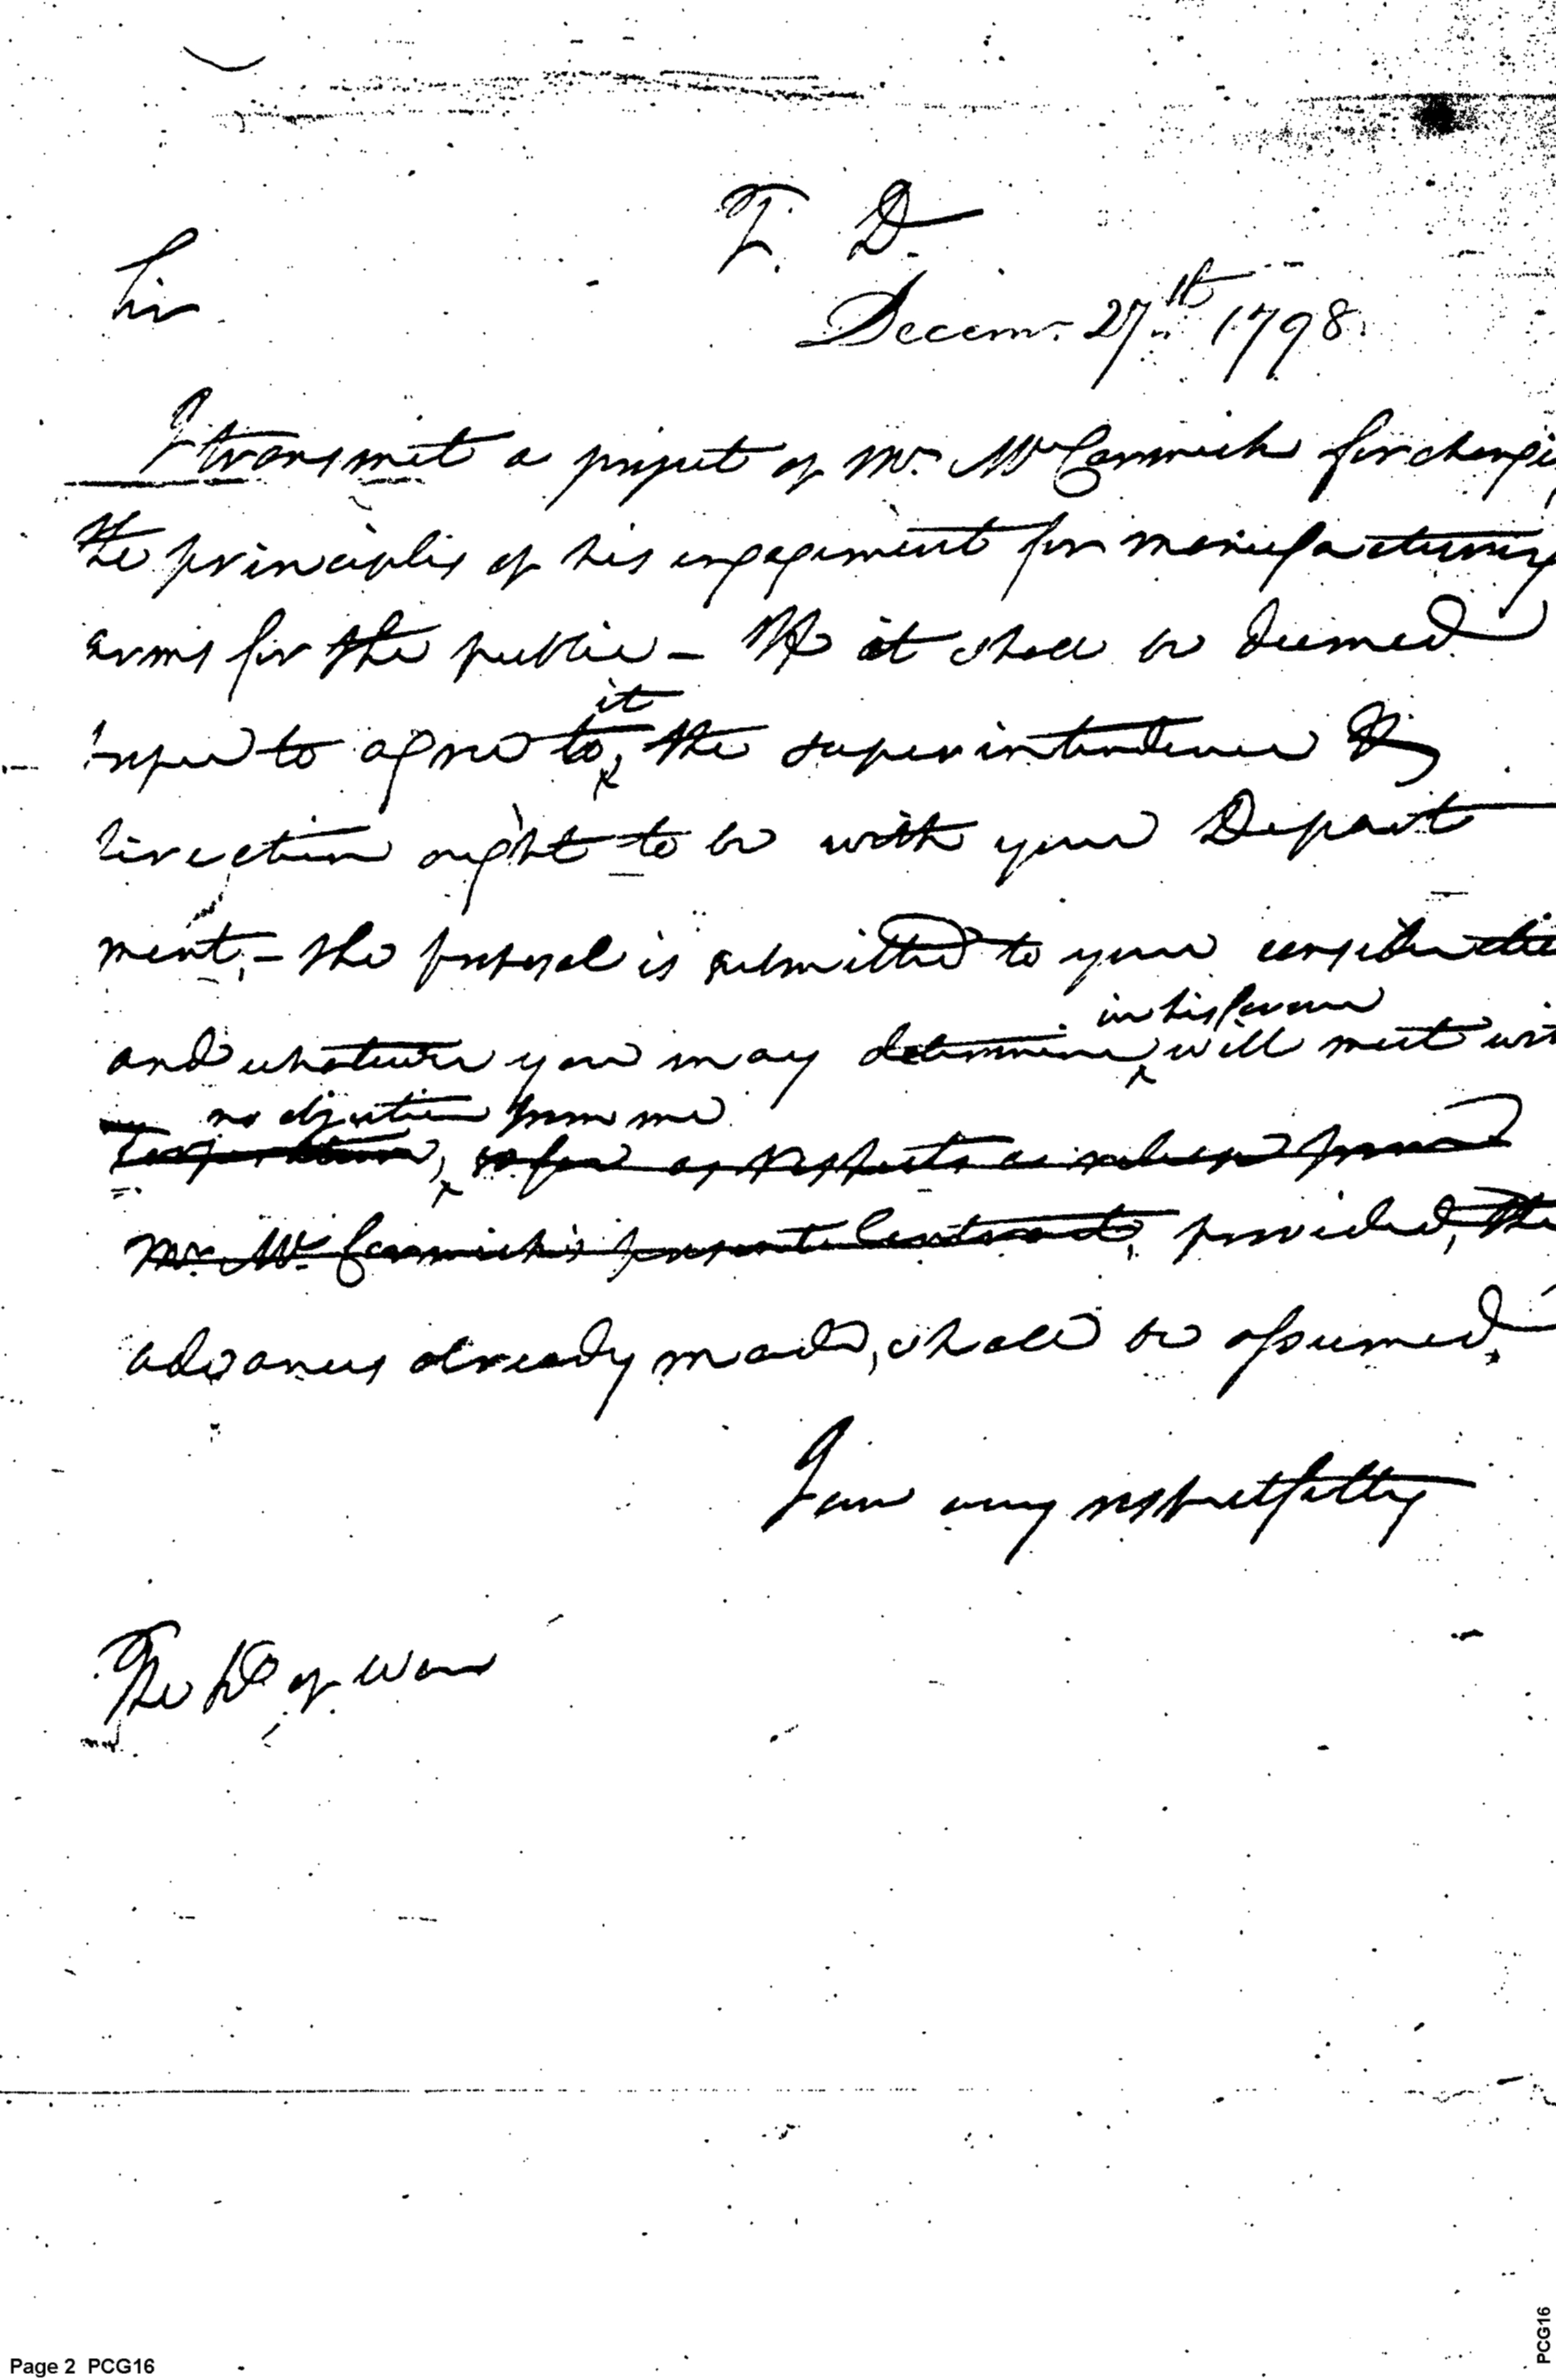 T. D.
Sir
Decemr. 27th 1798.
I transmit a project of Mr. McCormick for changi
the principles of his engagement for manufacturing
arms for the public – If it shall be deemed
roper to agree to it, the superintendence &
direction ought to be with your Depart
ment, – the proposal is submitted to your consideratio
and whatever you may determine in his favour will meet wit
no objection from me
so far as respects a release from
Mr. McCormick's present Contract, provided, the
advances already made, shall be assumed.
I am very respectfully
The of War
Page 2 PCG16
PCG16